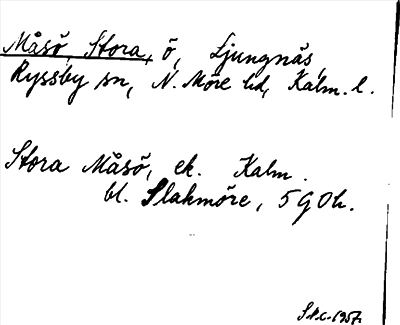 Måsö, Stora, ö, Ljungnäs,
Ryssby sn, N. Möre hd, Kalm. l.
Stora Måsö, ek. Kalm.
bl. Slakmöre, 5 G 0 h.
1957